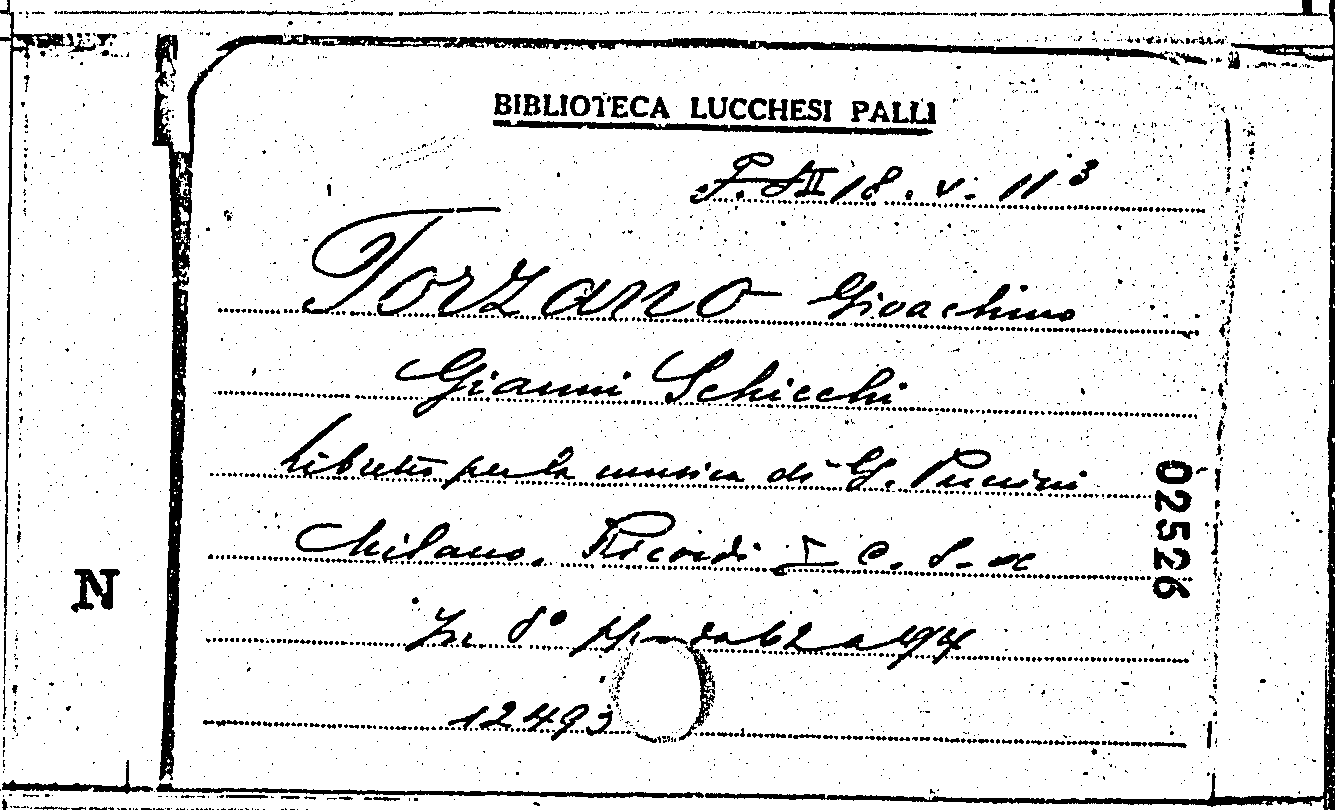 BIBLIOTECA LUCCHESI PALLI
F. A II 18. v. 11³
Forzano Gioachino
Gianni Schicchi
libretto per la musica di G. Puccini
Milano. Ricordi I C. S. a
In 8° pp. da 62 a 94
12493
N
02526